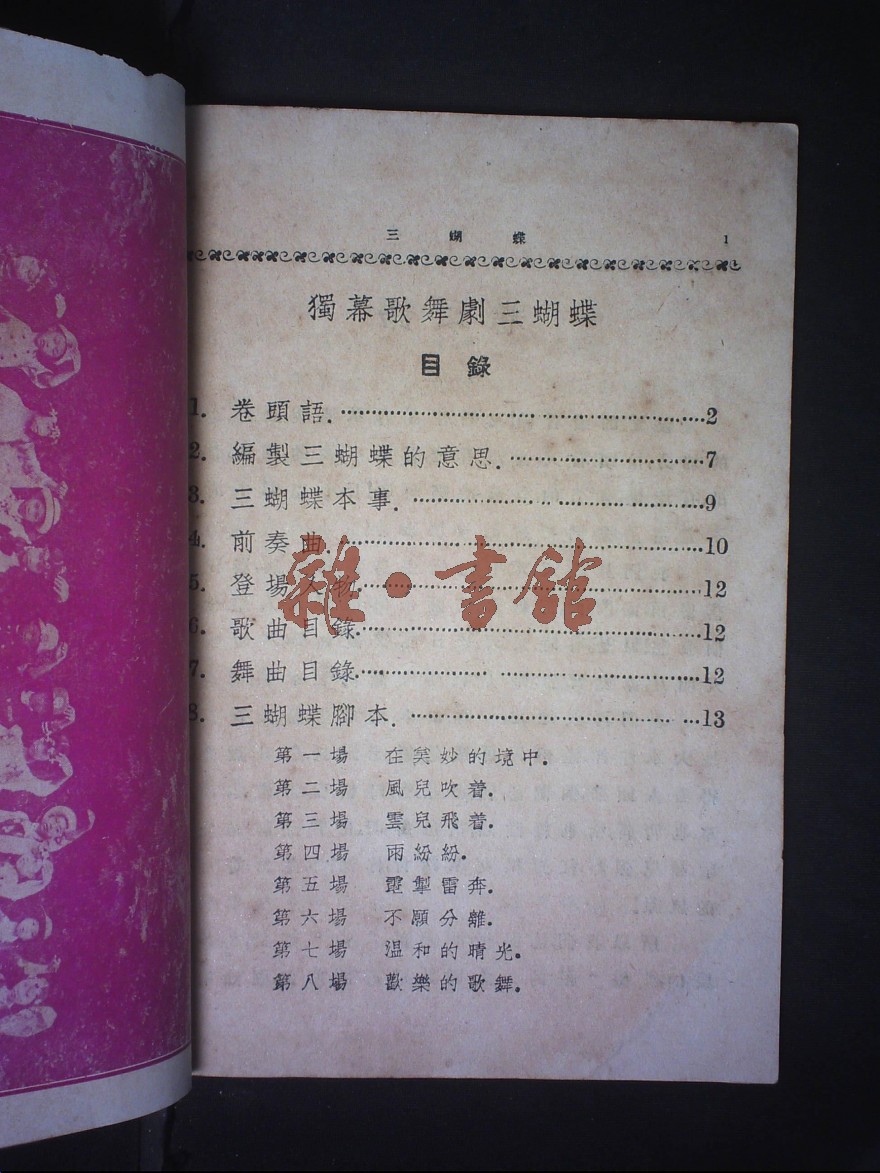 三蝴蝶 1
獨幕歌舞劇三蝴蝶
目錄
1. 卷頭語. 2
2. 編製三蝴蝶的意思. 7
3. 三蝴蝶本事. 9
4. 前奏曲. 10
5. 登場人物 12
6. 歌曲目錄 12
7. 舞曲目錄 12
8. 三蝴蝶腳本. 13
雜·書館
第一場 在美妙的境中.
第二場 風兒吹着.
第三場 雲兒飛着.
第四場 雨紛紛.
第五場 電掣雷奔.
第六場 不願分離.
第七場 温和的晴光.
第八場 歡樂的歌舞.